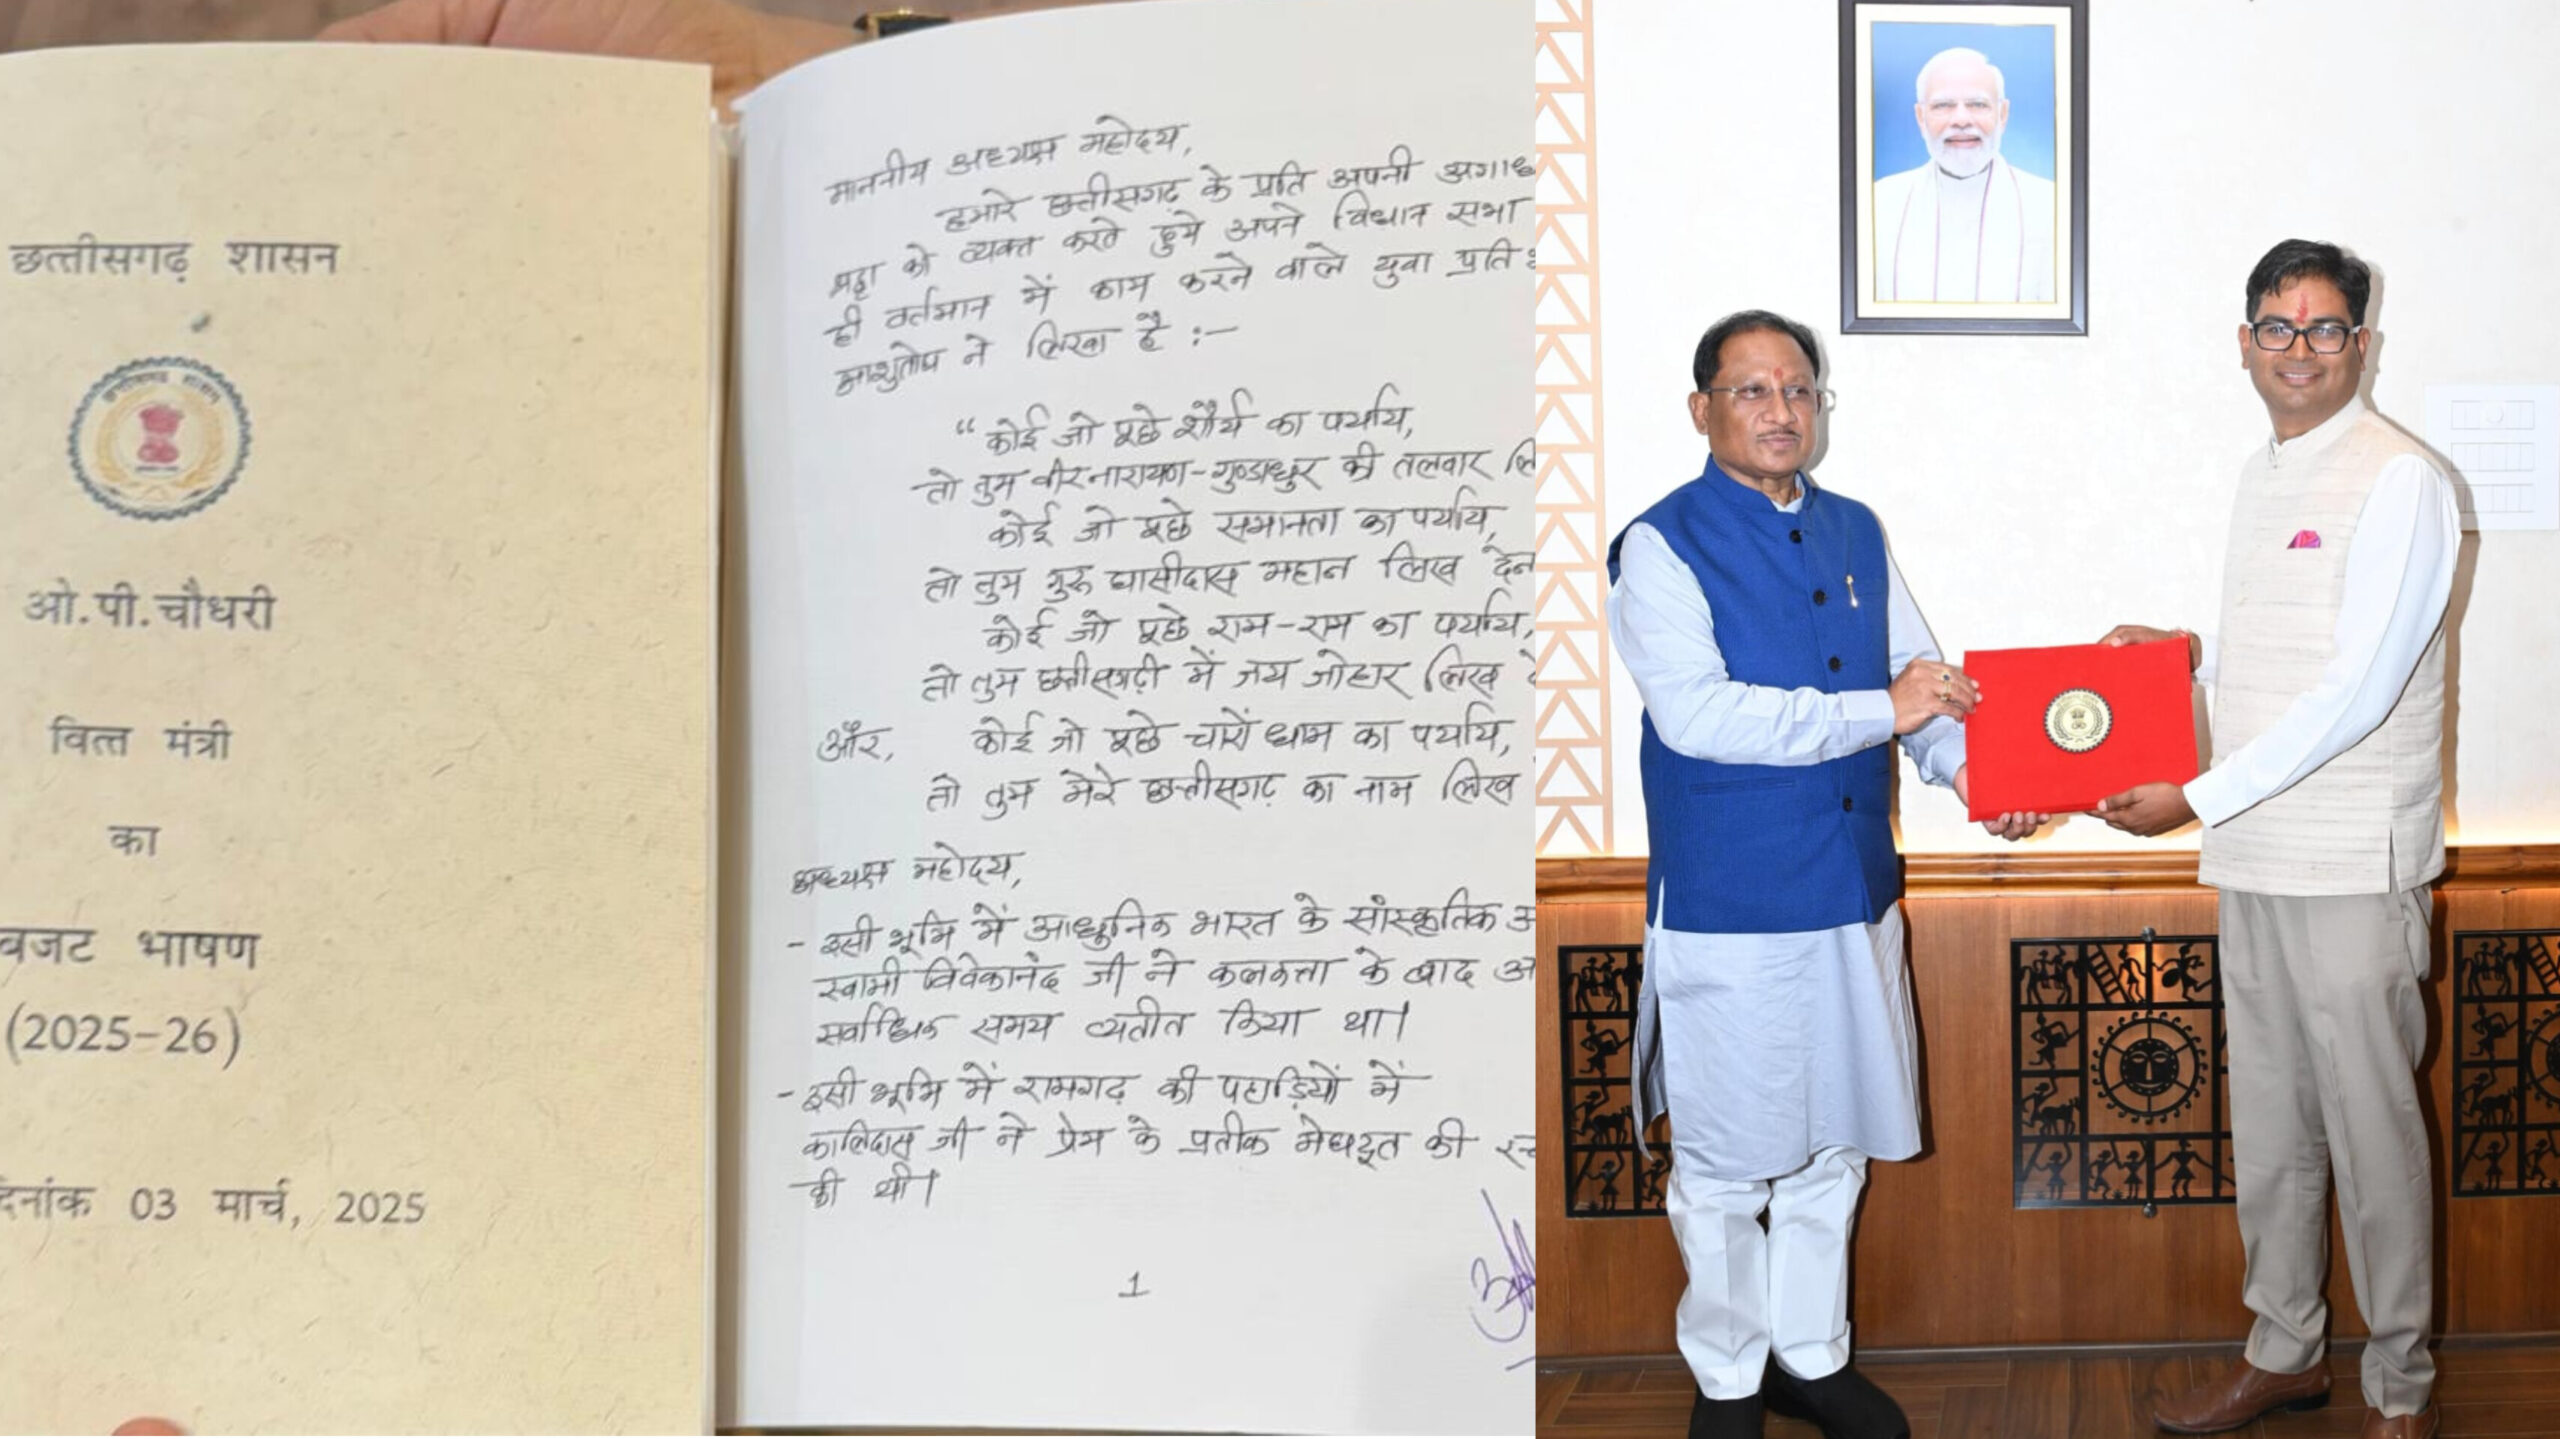 छत्तीसगढ़ शासन
ओ.पी.चौधरी
वित्त मंत्री
का
बजट भाषण
(2025-26)
दिनांक 03 मार्च, 2025
माननीय अध्यक्ष महोदय,
हमारे छत्तीसगढ़ के प्रति अपनी अगाध
श्रद्धा को व्यक्त करते हुये अपने विधान सभा
ही वर्तमान में काम करने वाले युवा प्रति
आशुतोष ने लिखा है :—
“ कोई जो पूछे शौर्य का पर्याय,
तो तुम वीरनारायण-गुण्डाधुर की तलवार लि
कोई जो पूछे समानता का पर्याय,
तो तुम गुरू घासीदास महान लिख देन
कोई जो पूछे राम-राम का पर्याय,
तो तुम छत्तीसगढ़ी में जय जोहार लिख
और, कोई जो पूछे चारों धाम का पर्याय,
तो तुम मेरे छत्तीसगढ़ का नाम लिख
अध्यक्ष महोदय,
- इसी भूमि में आधुनिक भारत के सांस्कृतिक
स्वामी विवेकानंद जी ने कलकत्ता के बाद
सर्वाधिक समय व्यतीत किया था।
- इसी भूमि में रामगढ़ की पहाड़ियों में
कालिदास जी ने प्रेम के प्रतीक मेघदूत की
की थी।
1